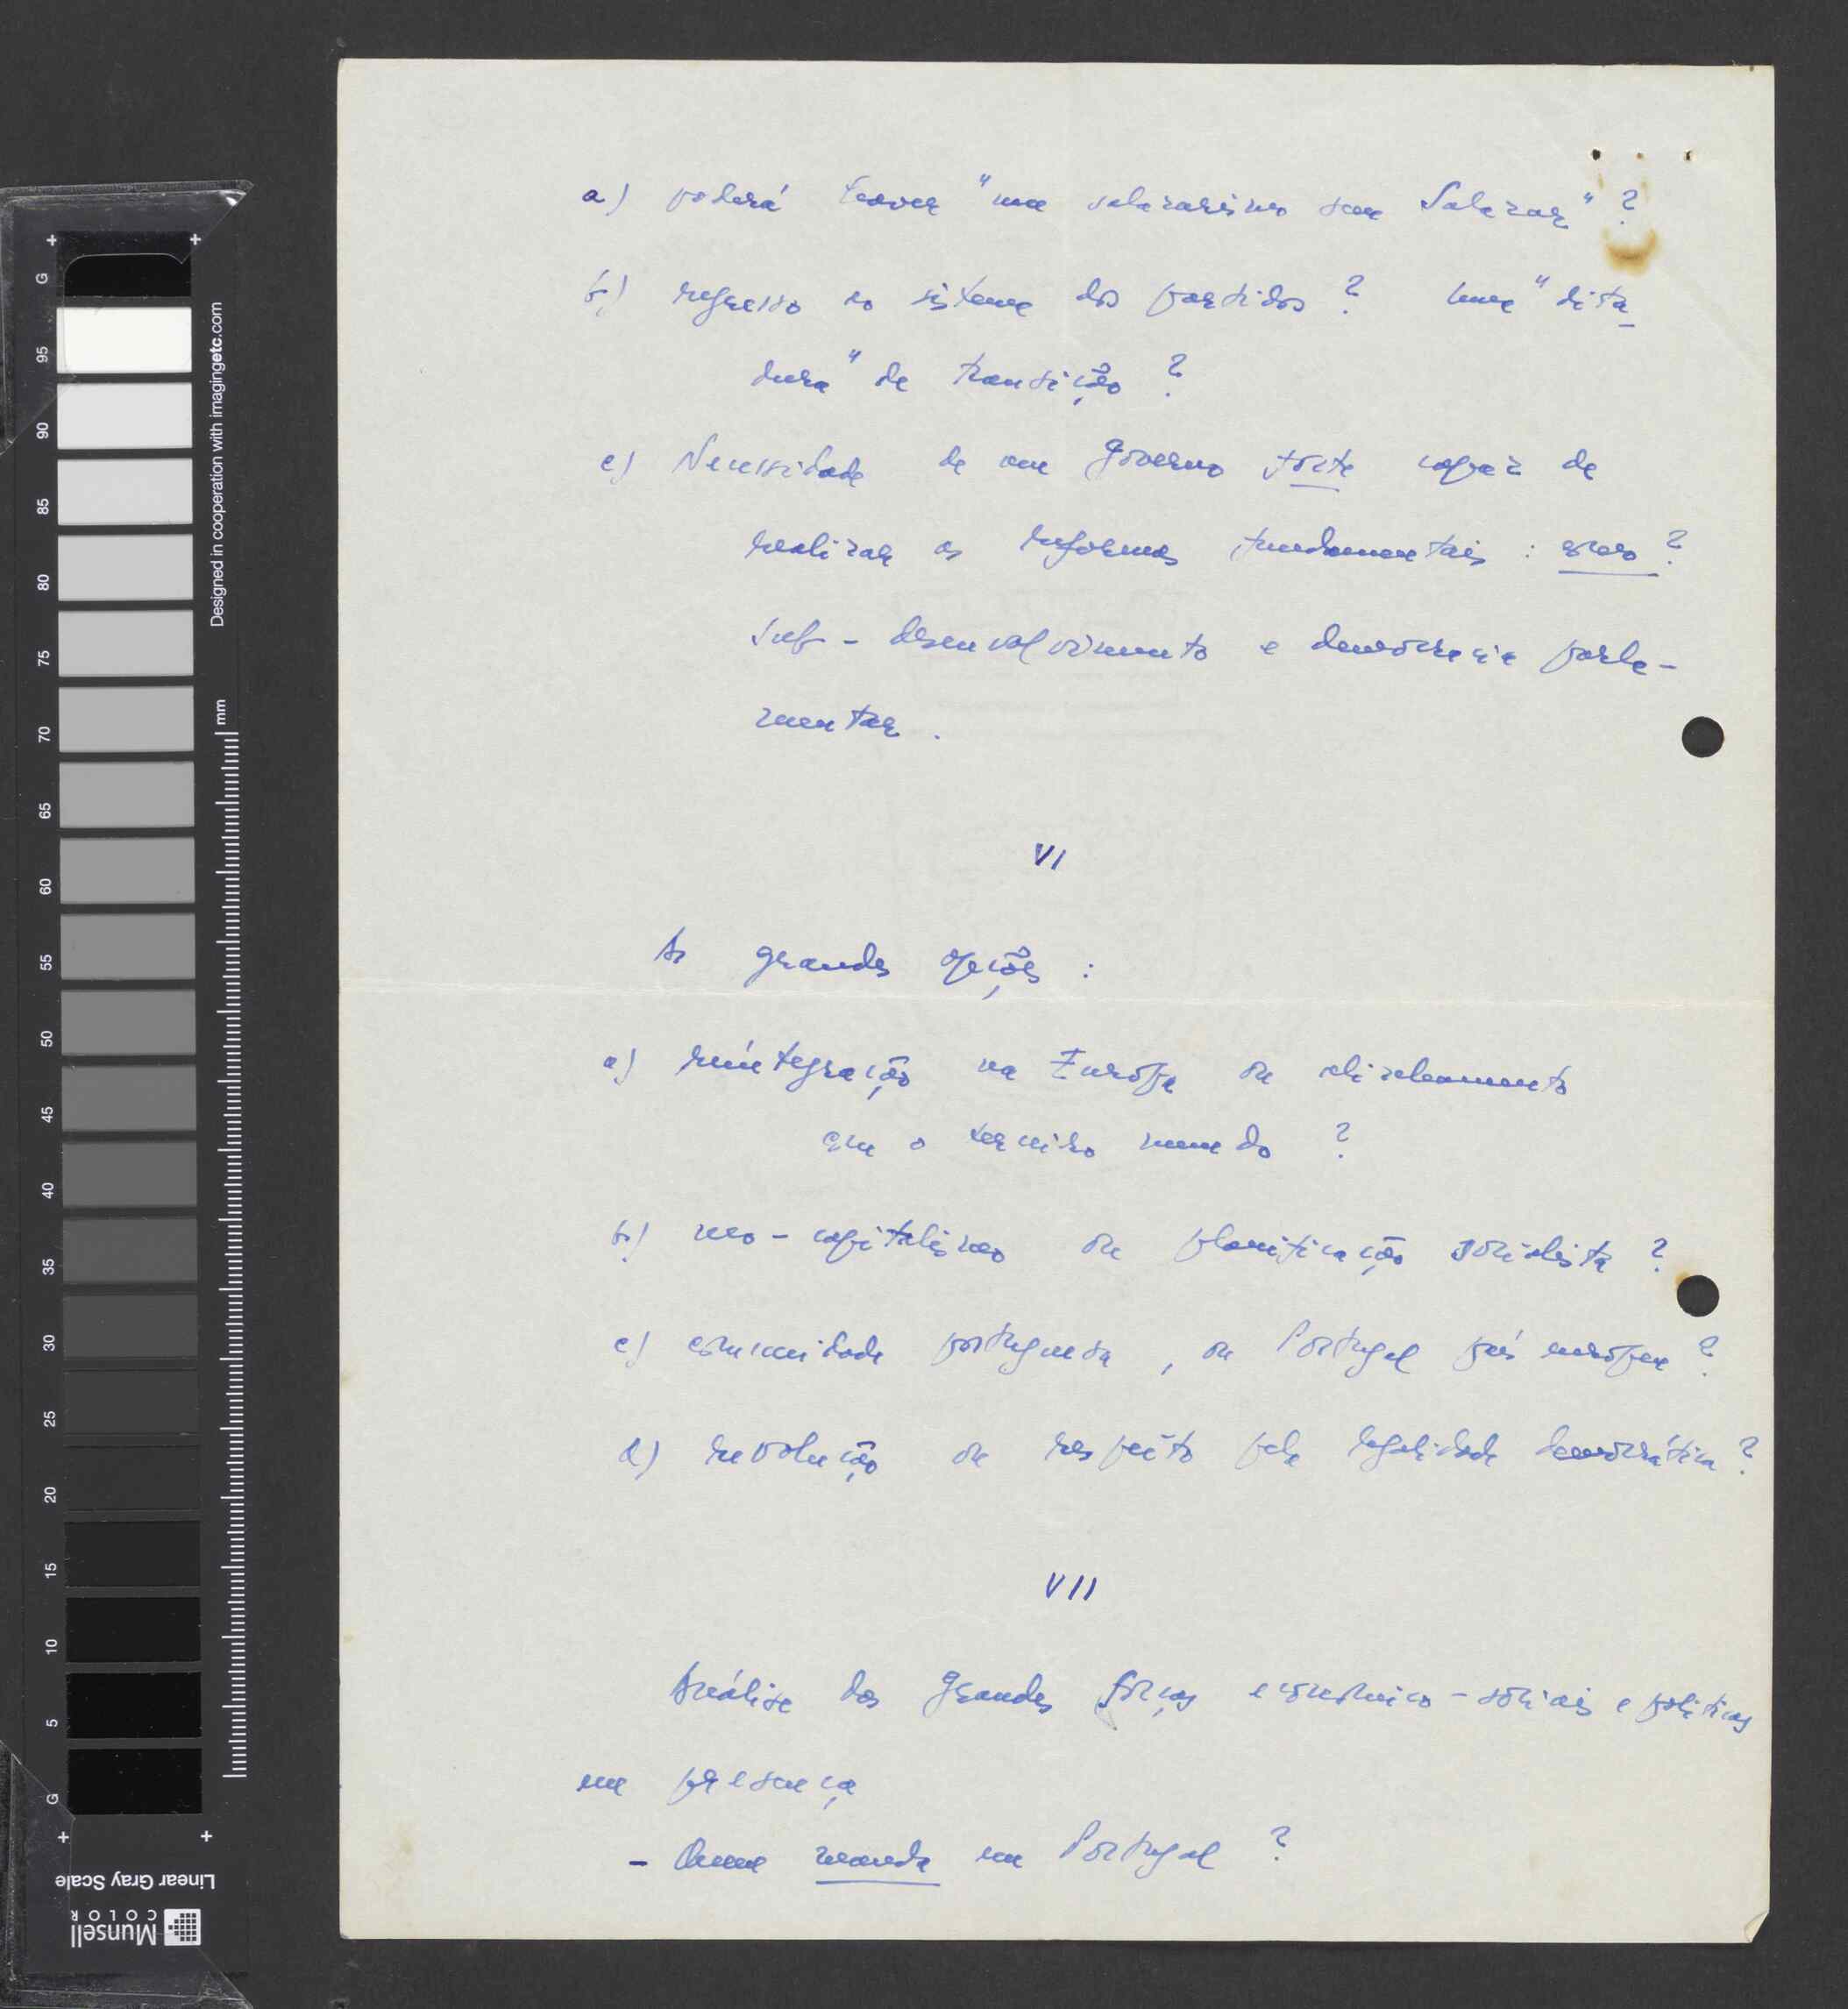 a) poderá haver "um salazarismo sem Salazar"?
b) regresso ao sistema dos partidos? uma "dita-
dura" de transição?
c) Necessidade de um Governo forte capaz de
realizar as reformas fundamentais:
Sub-desenvolvimento e democracia parla-
mentar.
VI
As grandes opções:
a) reintegração na Europa ou alinhamento
com o terceiro mundo?
b) neo-capitalismo ou planificação socialista?
c) comunidade portuguesa, ou Portugal país europeu?
d) revolução ou respeito pela legalidade democrática?
VII
Análise das grandes forças económico-sociais e políticas
em presença
- Quem manda em Portugal?
Designed in cooperation with imagingetc.com
mm
G 95 90 85 80 75 70 65 60 55 50 45 40 35 30 25 20 15 10 5 G
Linear Gray Scale
Munsell
COLOR